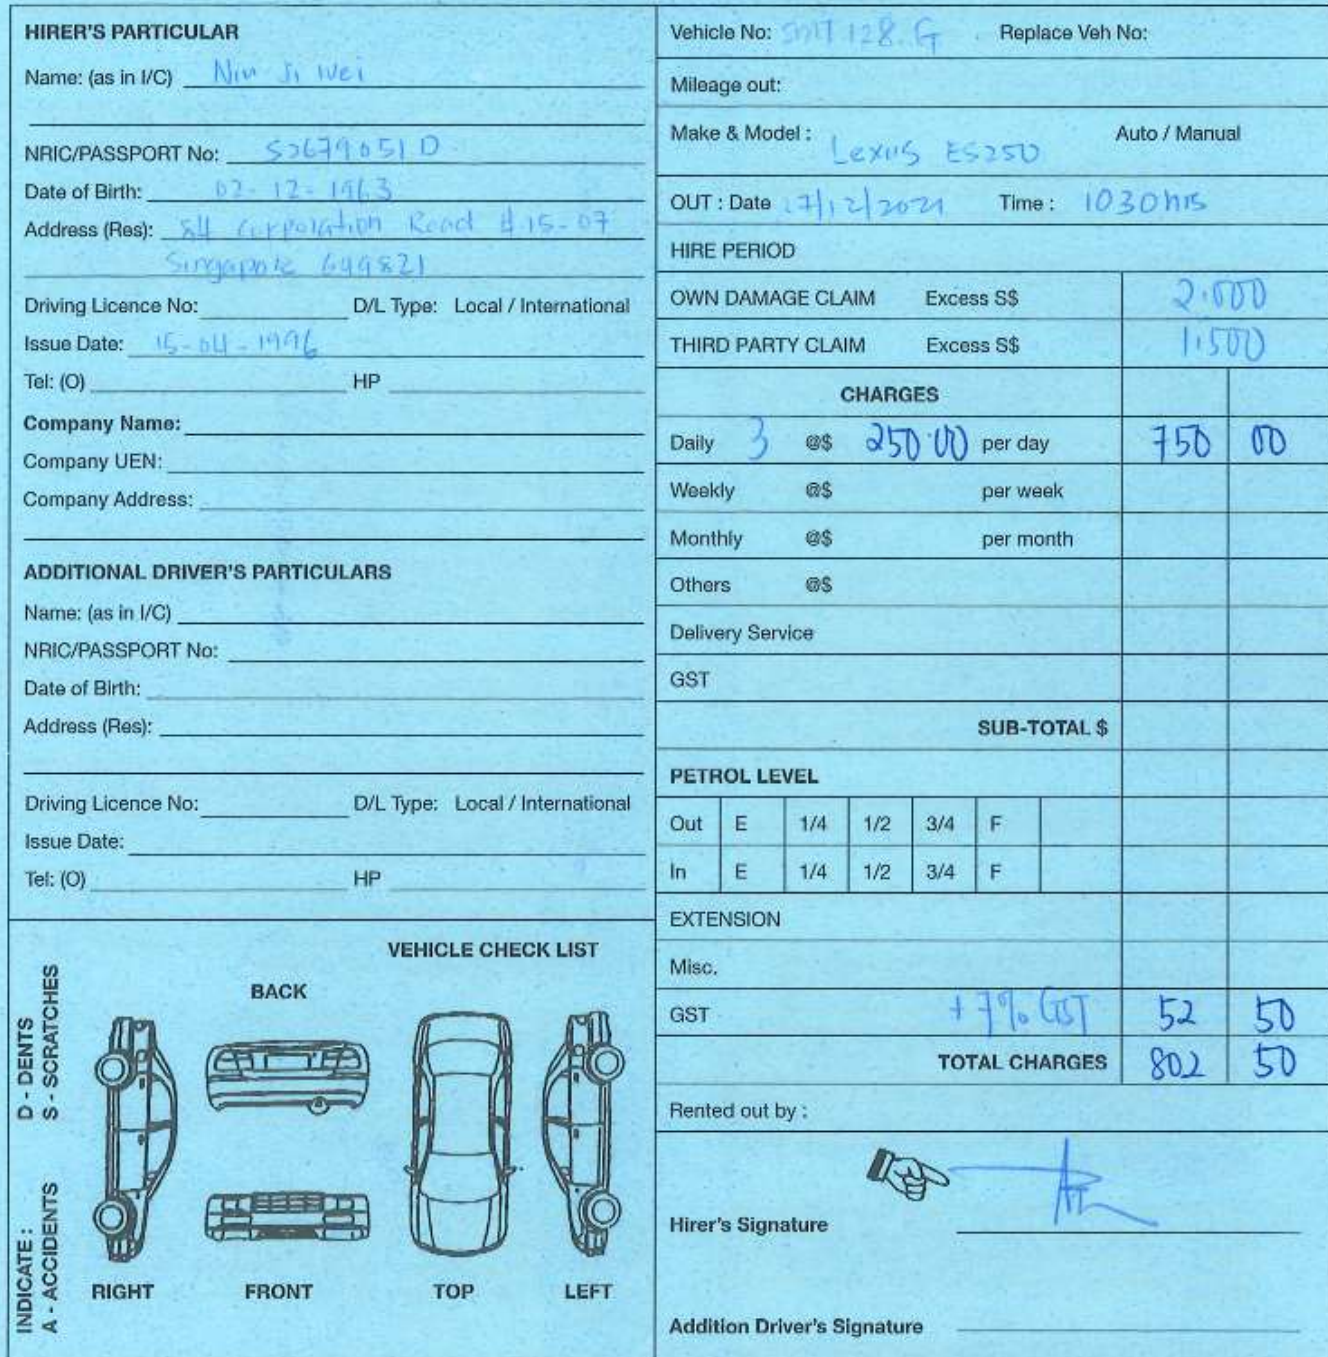 HIRER'S PARTICULAR
Name: (as in I/C) Niu Ji Wei
NRIC/PASSPORT No: S2679051D
Date of Birth: 02-12-1963
Address (Res): 84 Corporation Road #15-07
Singapore 649821
Driving Licence No: D/L Type: Local / International
Issue Date: 15-04-1996
Tel: (O) HP
Company Name:
Company UEN:
Company Address:
ADDITIONAL DRIVER'S PARTICULARS
Name: (as in I/C)
NRIC/PASSPORT No:
Date of Birth:
Address (Res):
Driving Licence No: D/L Type: Local / International
Issue Date:
Tel: (O) HP
VEHICLE CHECK LIST
INDICATE : D - DENTS
A - ACCIDENTS S - SCRATCHES
BACK
RIGHT FRONT TOP LEFT
Vehicle No: 128.G Replace Veh No:
Mileage out:
Make & Model : Auto / Manual
Lexus ES250
OUT : Date 17/12/2021 Time : 1030hrs
HIRE PERIOD
OWN DAMAGE CLAIM Excess S$ 2.000
THIRD PARTY CLAIM Excess S$ 1.500
CHARGES
Daily 3 @$ 250.00 per day 750 00
Weekly @$ per week
Monthly @$ per month
Others @$
Delivery Service
GST
SUB-TOTAL $
PETROL LEVEL
Out E 1/4 1/2 3/4 F
In E 1/4 1/2 3/4 F
EXTENSION
Misc.
GST +7% GST 52 50
TOTAL CHARGES 802 50
Rented out by :
Hirer's Signature
Addition Driver's Signature